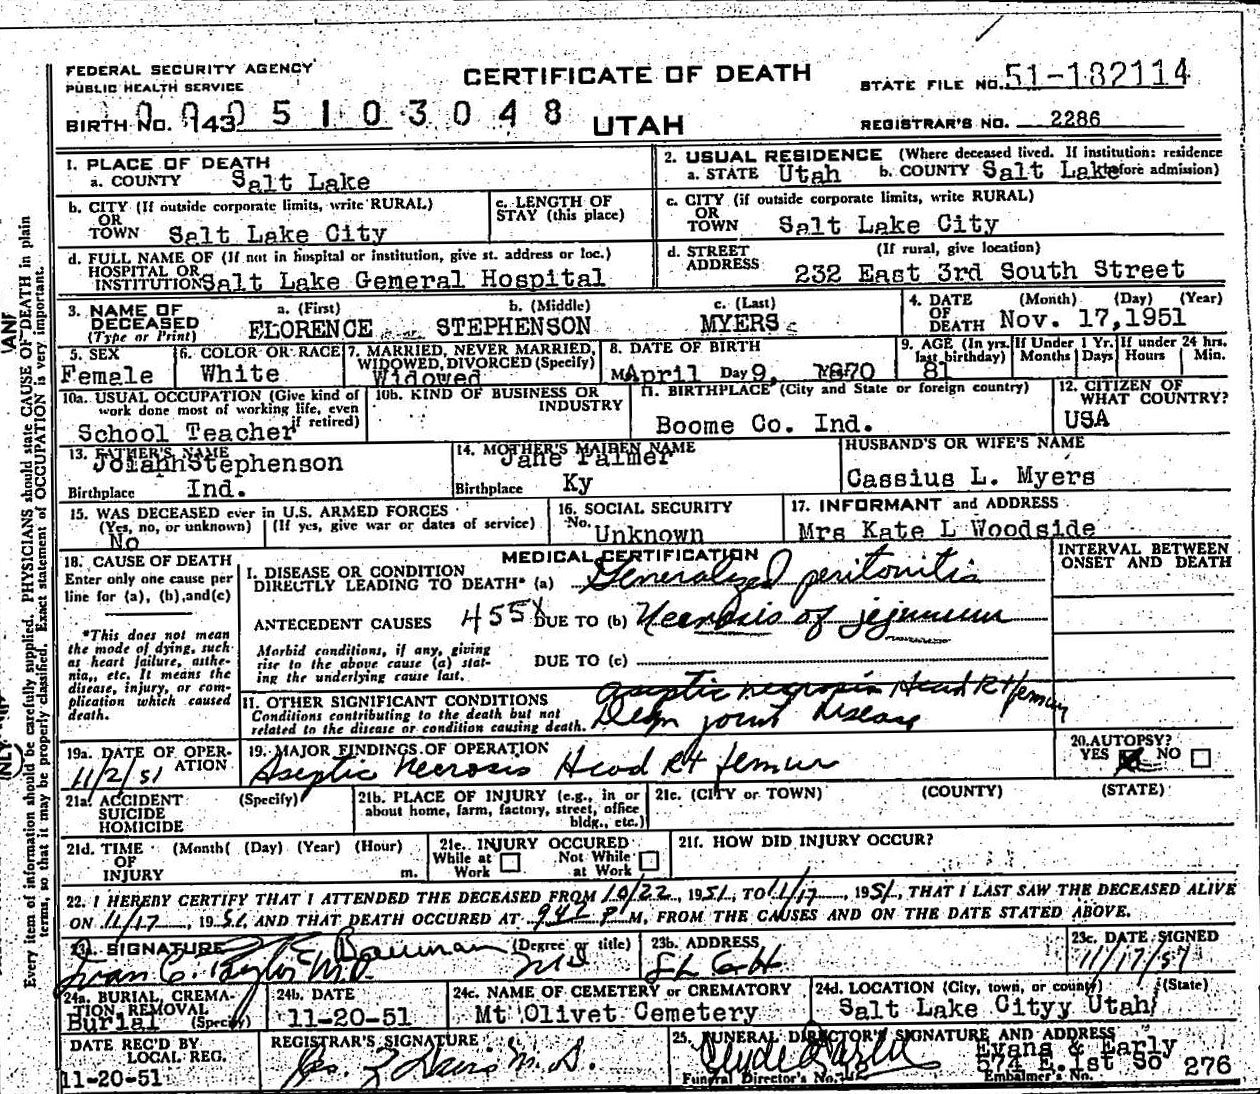 FEDERAL SECURITY AGENCY
PUBLIC HEALTH SERVICE
CERTIFICATE OF DEATH
STATE FILE NO. 51-182114
BIRTH NO. 143 0 0 0 5 1 0 3 0 4 8
UTAH
REGISTRAR'S NO. 2286
1. PLACE OF DEATH
a. COUNTY Salt Lake
2. USUAL RESIDENCE (Where deceased lived. If institution: residence before admission)
a. STATE Utah b. COUNTY Salt Lake
b. CITY (If outside corporate limits, write RURAL)
OR
TOWN Salt Lake City
c. LENGTH OF
STAY (this place)
c. CITY (if outside corporate limits, write RURAL)
OR
TOWN Salt Lake City
d. FULL NAME OF (If not in hospital or institution, give st. address or loc.)
HOSPITAL OR
INSTITUTION Salt Lake Gemeral Hospital
d. STREET
ADDRESS
(If rural, give location)
232 East 3rd South Street
3. NAME OF
DECEASED
(Type or Print)
a. (First) b. (Middle) c. (Last)
FLORENCE STEPHENSON MYERS
4. DATE
OF
DEATH
(Month) (Day) (Year)
Nov. 17,1951
5. SEX
Female
6. COLOR OR RACE
White
7. MARRIED, NEVER MARRIED,
WIDOWED, DIVORCED (Specify)
Widowed
8. DATE OF BIRTH
April Day 9, 1870
9. AGE (In yrs.
last birthday)
81
If Under 1 Yr.
Months Days
If under 24 hrs.
Hours Min.
10a. USUAL OCCUPATION (Give kind of
work done most of working life, even
if retired)
School Teacher
10b. KIND OF BUSINESS OR
INDUSTRY
11. BIRTHPLACE (City and State or foreign country)
Boome Co. Ind.
12. CITIZEN OF
WHAT COUNTRY?
USA
13. FATHER'S NAME
Stephenson
Birthplace Ind.
14. MOTHER'S MAIDEN NAME
Jane Palmer
Birthplace Ky
HUSBAND'S OR WIFE'S NAME
Cassius L. Myers
15. WAS DECEASED ever in U.S. ARMED FORCES
(Yes, no, or unknown) (If yes, give war or dates of service)
No
16. SOCIAL SECURITY
No. Unknown
17. INFORMANT and ADDRESS
Mrs Kate L Woodside
18. CAUSE OF DEATH
Enter only one cause per
line for (a), (b), and (c)
*This does not mean
the mode of dying, such
as heart failure, asthe-
nia, etc. It means the
disease, injury, or com-
plication which caused
death.
MEDICAL CERTIFICATION
INTERVAL BETWEEN
ONSET AND DEATH
I. DISEASE OR CONDITION
DIRECTLY LEADING TO DEATH* (a) Generalized peritonitis
ANTECEDENT CAUSES 455X DUE TO (b) Necrosis of jejunum
Morbid conditions, if any, giving
rise to the above cause (a) stat-
ing the underlying cause last.
DUE TO (c)
II. OTHER SIGNIFICANT CONDITIONS
Conditions contributing to the death but not
related to the disease or condition causing death.
aseptic necrosis Head Rt femur
Degn joint disease
19a. DATE OF OPER-
ATION
11/2/51
19. MAJOR FINDINGS OF OPERATION
Aseptic Necrosis Head Rt femur
20. AUTOPSY?
YES NO
21a. ACCIDENT
SUICIDE
HOMICIDE
(Specify)
21b. PLACE OF INJURY (e.g., in or
about home, farm, factory, street, office
bldg., etc.)
21c. (CITY or TOWN) (COUNTY) (STATE)
21d. TIME
OF
INJURY
(Month( (Day) (Year) (Hour)
m.
21e. INJURY OCCURED
While at
Work
Not While
at Work
21f. HOW DID INJURY OCCUR?
22. I HEREBY CERTIFY THAT I ATTENDED THE DECEASED FROM 10/22, 1951, TO 11/17, 1951, THAT I LAST SAW THE DECEASED ALIVE
ON 11/17, 1951, AND THAT DEATH OCCURED AT 942 P M, FROM THE CAUSES AND ON THE DATE STATED ABOVE.
SIGNATURE
E Bauman
Ivan C. Taylor M.D.
(Degree or title)
MD
23b. ADDRESS
23c. DATE SIGNED
11/17/51
24a. BURIAL, CREMA-
TION, REMOVAL
(Specify)
Burial
24b. DATE
11-20-51
24c. NAME OF CEMETERY or CREMATORY
Mt Olivet Cemetery
24d. LOCATION (City, town, or county) (State)
Salt Lake Cityy Utah
DATE REC'D BY
LOCAL REG.
11-20-51
REGISTRAR'S SIGNATURE
M.D.
25. FUNERAL DIRECTOR'S SIGNATURE AND ADDRESS
Evans & Early
574 E. 1st So 276
Funeral Director's No.
Embalmer's No.
Every item of information should be carefully supplied. PHYSICIANS should state CAUSE OF DEATH in plain
terms, so that it may be properly classified. Exact statement of OCCUPATION is very important.